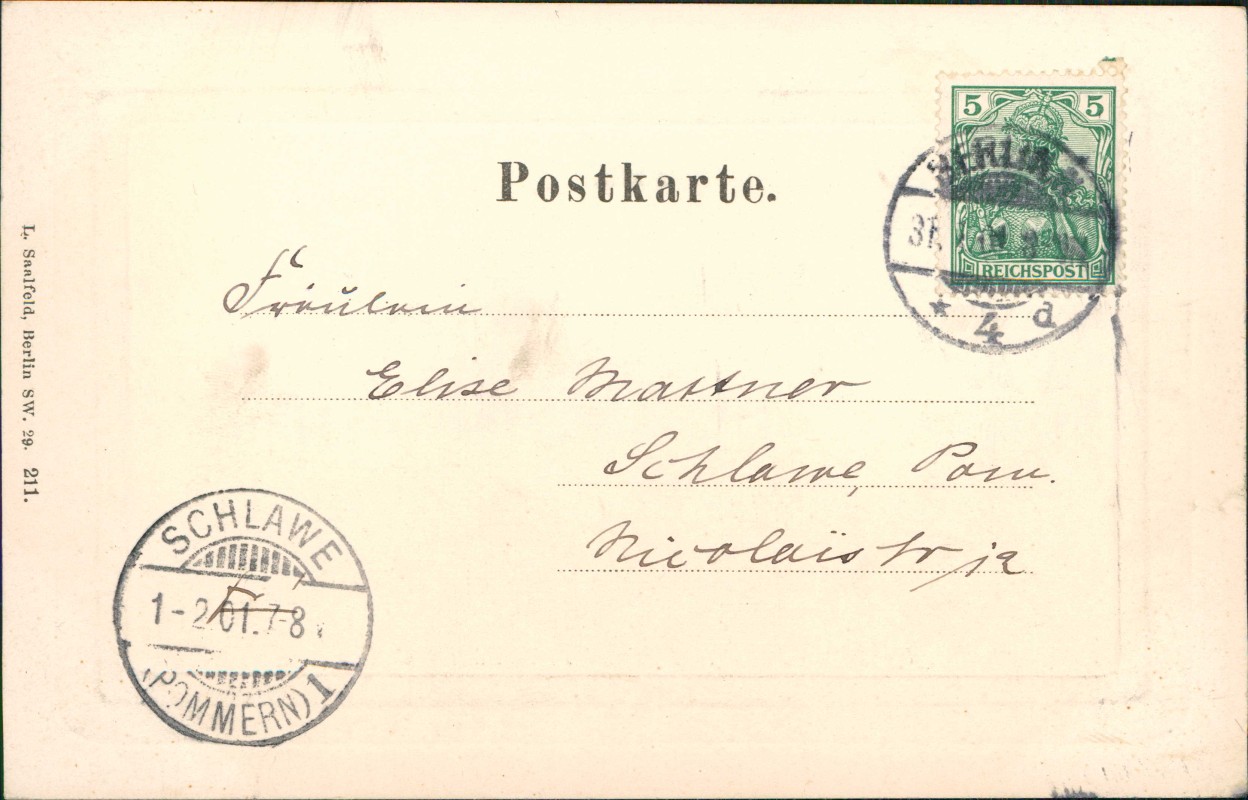 Postkarte.
5 5
REICHSPOST
BERLIN
31.
* 4 d
Fräulein
Elise Mattner
Schlawe, Pom.
Nicolaistr
SCHLAWE
1-2 01.7-8
(POMMERN) 1
L. Saalfeld, Berlin SW. 29. 211.